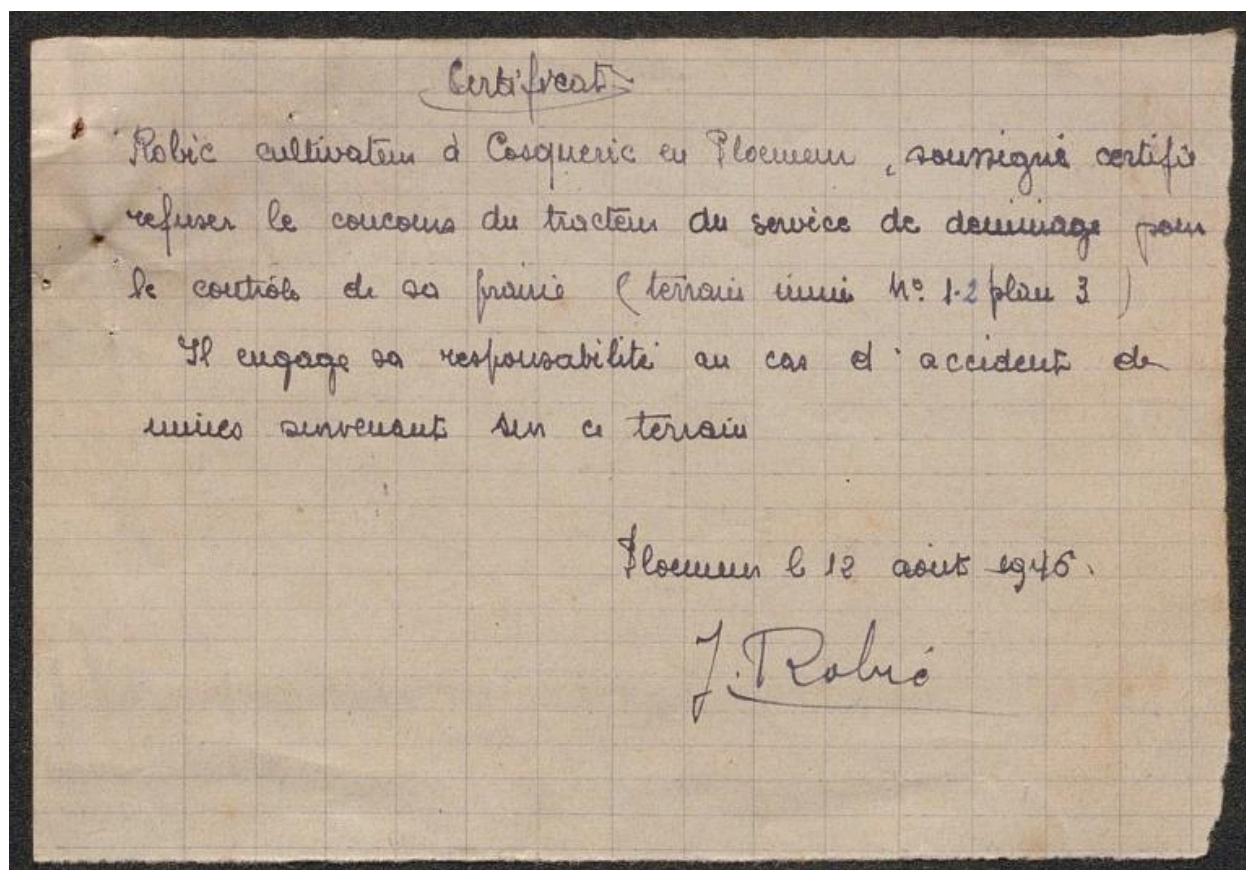 Certificat
Robic cultivateur à Cosqueric en Ploemeur, soussigné certifie
refuser le concours du tracteur du service de déminage pour
le contrôle de sa prairie (terrain miné N° 1-2 plan 3)
Il engage sa responsabilité au cas d'accident de
mines survenant sur ce terrain
Ploemeur le 12 août 1946.
J. Robic